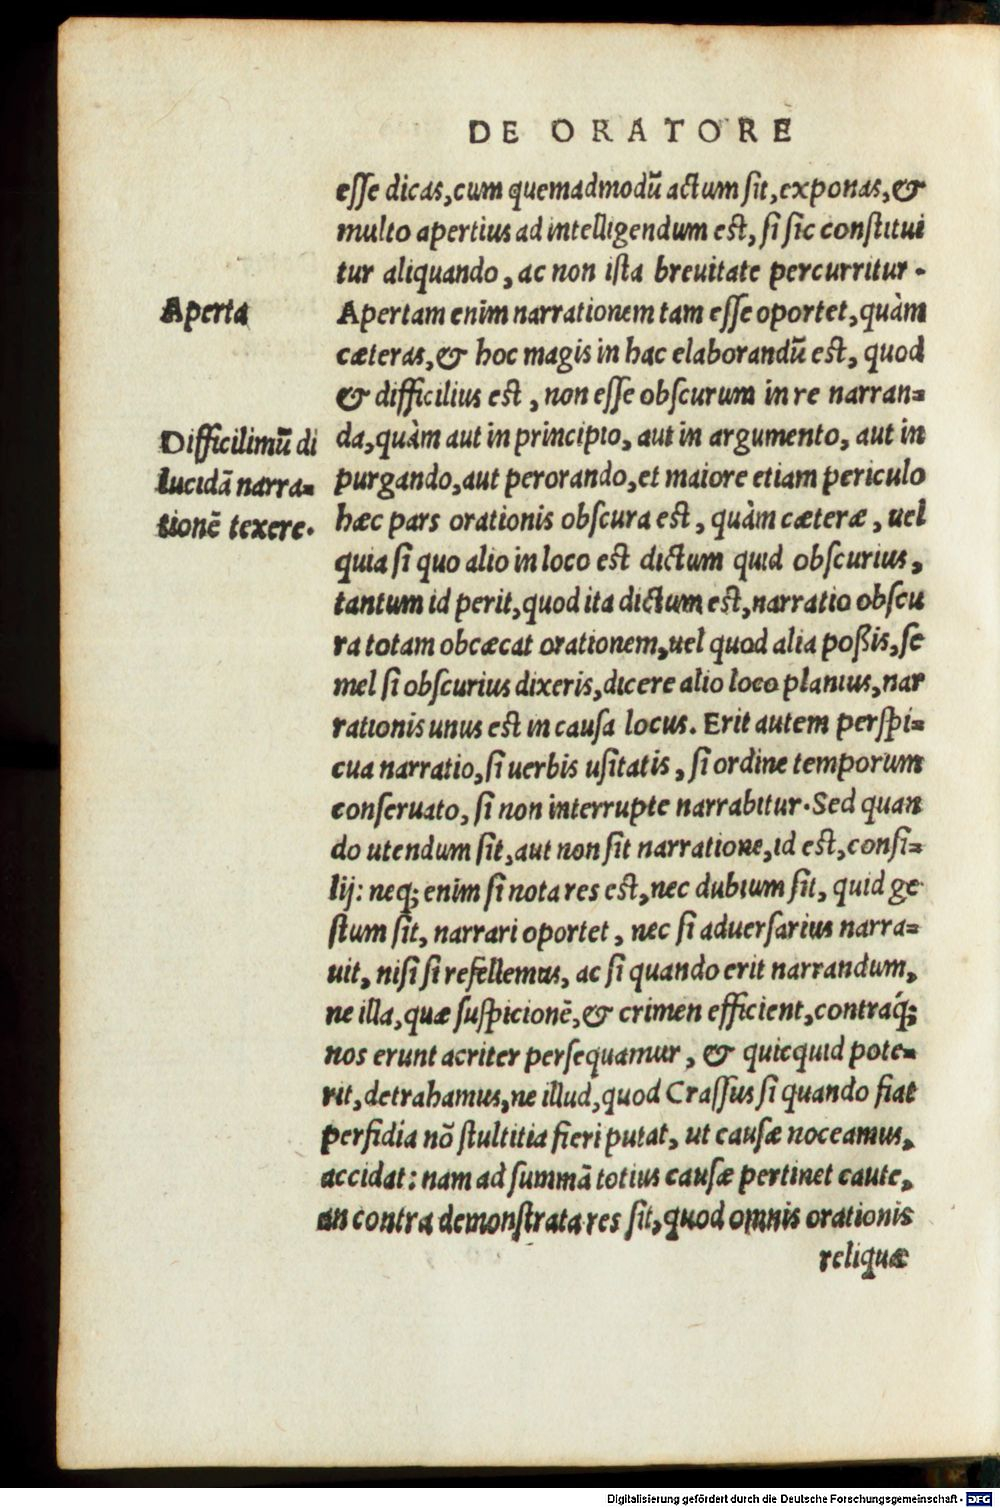 DE ORATORE
esse dicas, cum quemadmodũ actum sit, exponas, &
multo apertius ad intelligendum est, si sic constitui
tur aliquando, ac non ista breuitate percurritur.
Aperta
Apertam enim narrationem tam esse oportet, quàm
cæteras, & hoc magis in hac elaborandũ est, quod
& difficilius est, non esse obscurum in re narran=
Difficilimũ di
lucidã narra=
tionẽ texere.
da, quàm aut in principio, aut in argumento, aut in
purgando, aut perorando, et maiore etiam periculo
hæc pars orationis obscura est, quàm cæteræ, uel
quia si quo alio in loco est dictum quid obscurius,
tantum id perit, quod ita dictum est, narratio obscu
ra totam obcæcat orationem, uel quod alia poßis, se
mel si obscurius dixeris, dicere alio loco planius, nar
rationis unus est in causa locus. Erit autem perspi=
cua narratio, si uerbis usitatis, si ordine temporum
conseruato, si non interrupte narrabitur. Sed quan
do utendum sit, aut non sit narratione, id est, consi=
lij: neq; enim si nota res est, nec dubium sit, quid ge
stum sit, narrari oportet, nec si aduersarius narra=
uit, nisi si refellemus, ac si quando erit narrandum,
ne illa, quæ suspicionẽ, & crimen efficient, contráq;
nos erunt acriter persequamur, & quicquid pote=
rit, detrahamus, ne illud, quod Crassus si quando fiat
perfidia nõ stultitia fieri putat, ut causæ noceamus,
accidat: nam ad summã totius causæ pertinet caute,
an contra demonstrata res sit, quod omnis orationis
reliquæ
Digitalisierung gefördert durch die Deutsche Forschungsgemeinschaft - DFG